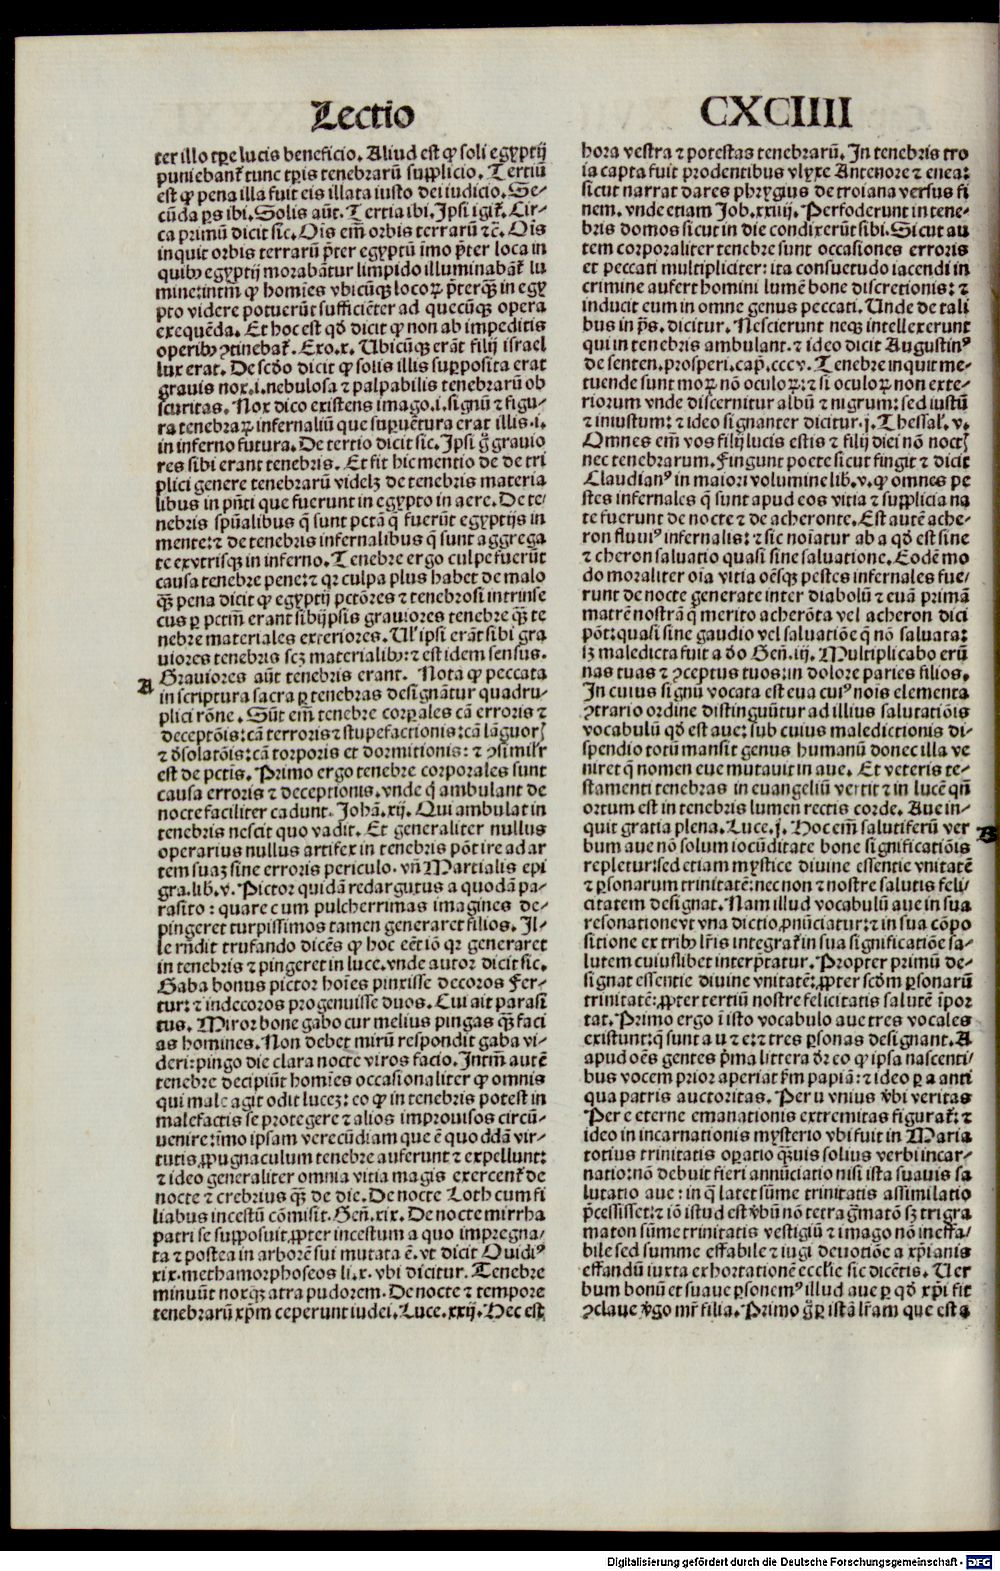 Lectio
CXCIIII
ter illo tꝑe lucis beneficio. Aliud est ꝙ soli egyptij
puniebanť tunc tꝑis tenebrarū supplicio. Tertiū
est ꝙ pena illa fuit eis illata iusto dei iudicio. Se-
cūda ꝑs ibi. Solis aūt. Tertia ibi. Ipsi igiť. Cir-
ca primū dicit sic. Ois em̄ orbis terrarū ⁊c̄. Ois
inquit orbis terrarū p̄ter egyptū imo p̄ter loca in
quibꝰ egyptij morabātur limpido illuminabāť lu
mine: intm̄ ꝙ homīes vbicūqꝫ locoꝝ p̄terqꝫ̄ in egy
pto videre potuerūt sufficiēter ad quecūqꝫ opera
exequēda. Et hoc est qđ dicit ꝙ non ab impeditis
operibꝰ ꝯtinebať. Exo.x. Ubicūqꝫ erāt filij israel
lux erat. De scđo dicit ꝙ solis illis supposita erat
grauis nox.i.nebulosa ⁊ palpabilis tenebrarū ob
scuritas. Nox dico existens imago.i.signū ⁊ figu-
ra tenebraꝝ infernaliū que supuētura erat illis.i.
in inferno futura. De tertio dicit sic. Ipsi g̃ grauio
res sibi erant tenebris. Et fit hic mentio de de tri
plici genere tenebrarū videlꝫ de tenebris materia
libus in pn̄ti que fuerunt in egypto in aere. De te-
nebris spūalibus q̄ sunt pctā q̄ fuerūt egyptijs in
mente: ⁊ de tenebris infernalibus q̄ sunt aggrega
te ex vtrisqꝫ in inferno. Tenebre ergo culpe fuerūt
causa tenebre pene: ⁊ qꝛ culpa plus habet de malo
qꝫ̄ pena dicit ꝙ egyptij pctōres ⁊ tenebrosi intrinse
cus ꝑ pctm̄ erant sibijpsis grauiores tenebre qꝫ̄ te
nebre materiales exteriores. Ul' ipsi erāt sibi gra
uiores tenebris scꝫ materialibꝰ: ⁊ est idem sensus.
A
Grauiores aūt tenebris erant. Nota ꝙ peccata
in scriptura sacra ꝑ tenebras designātur quadru-
plici rōne. Sūt em̄ tenebre corꝑales cā erroris ⁊
deceptōis: cā terroris ⁊ stupefactionis: cā lāguorꝭ
⁊ đsolatōis: cā torporis et dormitionis: ⁊ ꝯsimilr
est de pctis. Primo ergo tenebre corporales sunt
causa erroris ⁊ deceptionis. vnde q̄ ambulant de
nocte faciliter cadunt. Johā.xij. Qui ambulat in
tenebris nescit quo vadit. Et generaliter nullus
operarius nullus artifex in tenebris pōt ire ad ar
tem suaꝫ sine erroris periculo. vn̄ Martialis epi
gra.lib.v. Pictor quidā redargutus a quodā pa-
rasito : quare cum pulcherrimas imagines de-
pingeret turpissimos tamen generaret filios. Il-
le rn̄dit trufando dicēs ꝙ hoc eēt iō qꝛ generaret
in tenebris ⁊ pingeret in luce. vnde autor dicit sic.
Gaba bonus pictor hoīes pinxisse decoros Fer-
tur: ⁊ indecoros progenuisse duos. Cui ait parasi
tus. Miror bone gabo cur melius pingas qꝫ̄ faci
as homines. Non debet mirū respondit gaba vi-
deri: pingo die clara nocte viros facio. Intm̄ autē
tenebre decipiūt homīes occasionaliter ꝙ omnis
qui male agit odit lucem: eo ꝙ in tenebris potest in
malefactis se protegere ⁊ alios improuisos circū-
uenire: imo ipsam verecūdiam que ē quoddā vir-
tutis ꝓpugnaculum tenebre auferunt ⁊ expellunt:
⁊ ideo generaliter omnia vitia magis exercenť de
nocte ⁊ crebrius qꝫ̄ de die. De nocte Loth cum fi
liabus incestū cōmisit. Gen̄.xix. De nocte mirrha
patri se supposuit ꝓpter incestum a quo impregna-
ta ⁊ postea in arborē sui mutata ē. vt dicit Ouidiꝰ
xix. methamorphoseos li.x. vbi dicitur. Tenebre
minuūt noxqꝫ atra pudorem. De nocte ⁊ tempore
tenebrarū xp̄m ceperunt iudei. Luce.xxij. Hec est
hora vestra ⁊ potestas tenebrarū. In tenebris tro
ia capta fuit prodentibus vlyxe Antenore ⁊ enea:
sicut narrat dares phrygius de troiana versus fi
nem. vnde etiam Job.xxiiij. Perfoderunt in tene-
bris domos sicut in die condixerūt sibi. Sicut au
tem corporaliter tenebre sunt occasiones erroris
et peccati multipliciter: ita consuetudo iacendi in
crimine aufert homini lumē bone discretionis: ⁊
inducit eum in omne genus peccati. Unde de tali
bus in p̄s. dicitur. Nescierunt neqꝫ intellexerunt
qui in tenebris ambulant. ⁊ ideo dicit Augustinꝰ
de senten.prosperi.cap̄.cccv. Tenebre inquit me-
tuende sunt moꝝ nō oculoꝝ: ⁊ si oculoꝝ non exte-
riorum vnde discernitur albū ⁊ nigrum: sed iustū
⁊ iniustum: ⁊ ideo signanter dicitur.j. Thessal'. v.
Omnes em̄ vos filij lucis estis ⁊ filij diei nō noctꝭ
nec tenebrarum. Fingunt poete sicut fingit ⁊ dicit
Claudianꝰ in maiori volumine lib.v. ꝙ omnes pe
stes infernales q̄ sunt apud eos vitia ⁊ supplicia na
te fuerunt de nocte ⁊ de acheronte. Est autē ache-
ron fluuiꝰ infernalis: ⁊ sic noīatur ab a qđ est sine
⁊ cheron saluatio quasi sine saluatione. Eodē mo
do moraliter oīa vitia oēsqꝫ pestes infernales fue-
runt de nocte generate inter diabolū ⁊ euā primā
matrē nostrā q̄ merito acherōta vel acheron dici
pōt: quasi sine gaudio vel saluatiōe q̄ nō saluata:
sꝫ maledicta fuit a đo Gen̄.iij. Multiplicabo erū
nas tuas ⁊ ꝯceptus tuos: in dolore paries filios.
In cuius signū vocata est eua cuiꝰ nois elementa
ꝯtrario ordine distinguūtur ad illius salutatiōis
vocabulū qđ est aue: sub cuius maledictionis di-
spendio totū mansit genus humanū donec illa ve
niret q̄ nomen eue mutauit in aue. Et veteris te-
stamenti tenebras in euangeliū vertit ⁊ in lucē qn̄
ortum est in tenebris lumen rectis corde. Aue in-
B
quit gratia plena. Luce.j. Hoc em̄ salutiferū ver
bum aue nō solum iocūditate bone significatiōis
repletur: sed etiam mystice diuine essentie vnitatē
⁊ ꝑsonarum trinitatē: nec non ⁊ nostre salutis feli
citatem designat. Nam illud vocabulū aue in sua
resonatione vt vna dictio ꝓnūciatur: ⁊ in sua cōpo
sitione ex tribꝰ lr̄is integrať in sua significatiōe sa-
lutem cuiuslibet interp̄tatur. Propter primū de-
signat essentie diuine vnitatē: ꝓpter scđm ꝑsonarū
trinitatē: ꝓpter tertiū nostre felicitatis salutē ipor
tat. Primo ergo ī isto vocabulo aue tres vocales
existunt: q̄ sunt a u ⁊ e: ⁊ tres ꝑsonas designant. A
apud oēs gentes p̄ma littera đr eo ꝙ ipsa nascenti-
bus vocem prior aperiat ẜm papiā: ⁊ ideo ꝑ a anti
qua patris auctoritas. Per u vnius v̄bi veritas
Per e eterne emanationis extremitas figurať: ⁊
ideo in incarnationis mysterio vbi fuit in Maria
totius trinitatis oꝑatio qꝫ̄uis solius verbi incar-
natio: nō debuit fieri annūciatio nisi ista suauis sa
lutatio aue : in q̄ latet sūme trinitatis assimilatio
p̄cessisset: ⁊ iō istud est v̄bū nō tetrag̃matō sꝫ trigra
maton sūme trinitatis vestigiū ⁊ imago nō ineffa-
bile sed summe effabile ⁊ iugi deuotiōe a xp̄ianis
effandū iuxta exhortationē ecclie sic dicētis. Uer
bum bonū et suaue ꝑsonemꝰ illud aue ꝑ qđ xp̄i fit
ꝯclaue v̄go mr̄ filia. Primo g̃ ꝑ istā lr̄am que est a
Digitalisierung gefördert durch die Deutsche Forschungsgemeinschaft - DFG